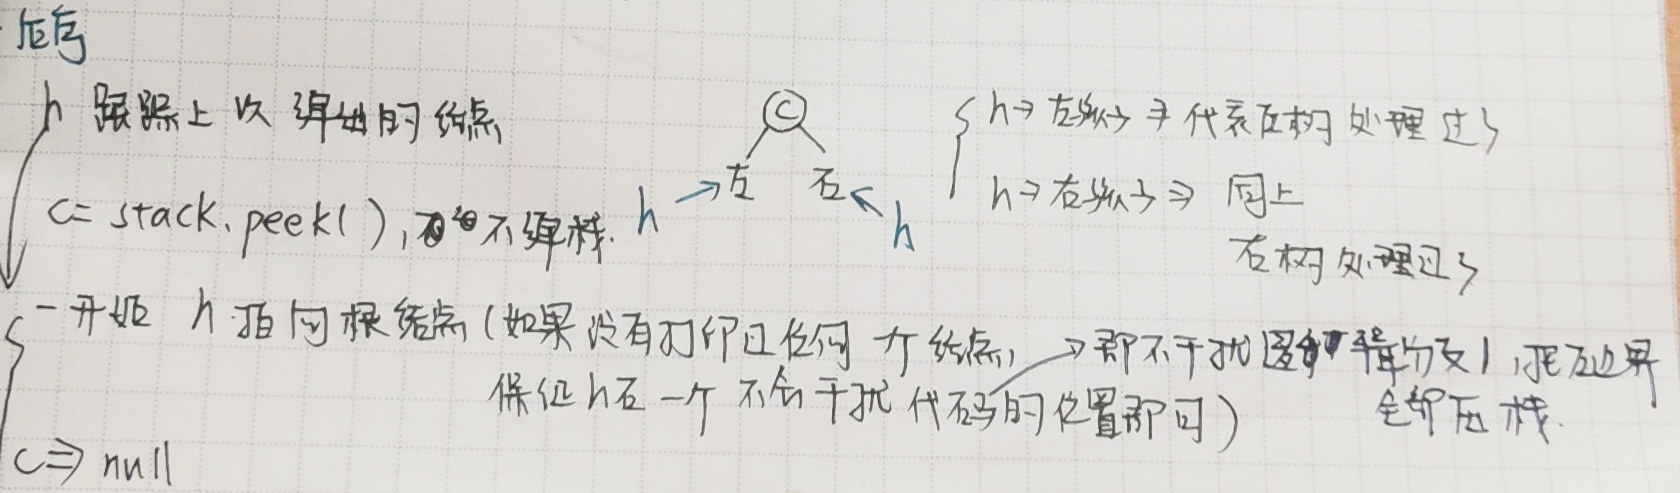 后序
h 跟踪上次弹出的结点
c
左 右
h h
h→左孩子⇒代表左树处理过了
h→右孩子⇒同上
右树处理过了
c= stack.peek(),不弹栈.
一开始 h 指向根结点(如果没有打印过任何一个结点,
保证h在一个不会干扰代码的位置即可)
→即不干扰分支1,把左边界
全部压栈.
c⇒null